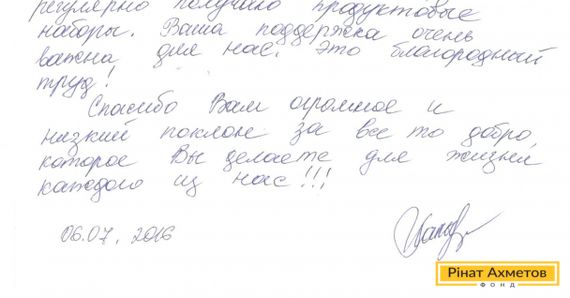 регулярно получаю продуктовые
наборы. Ваша поддержка очень
важна для нас. Это благородный
труд!
Спасибо Вам огромное и
низкий поклон за все то добро,
которое Вы делаете для жизни
каждого из нас!!!
06.07.2016
Рінат Ахметов
ФОНД